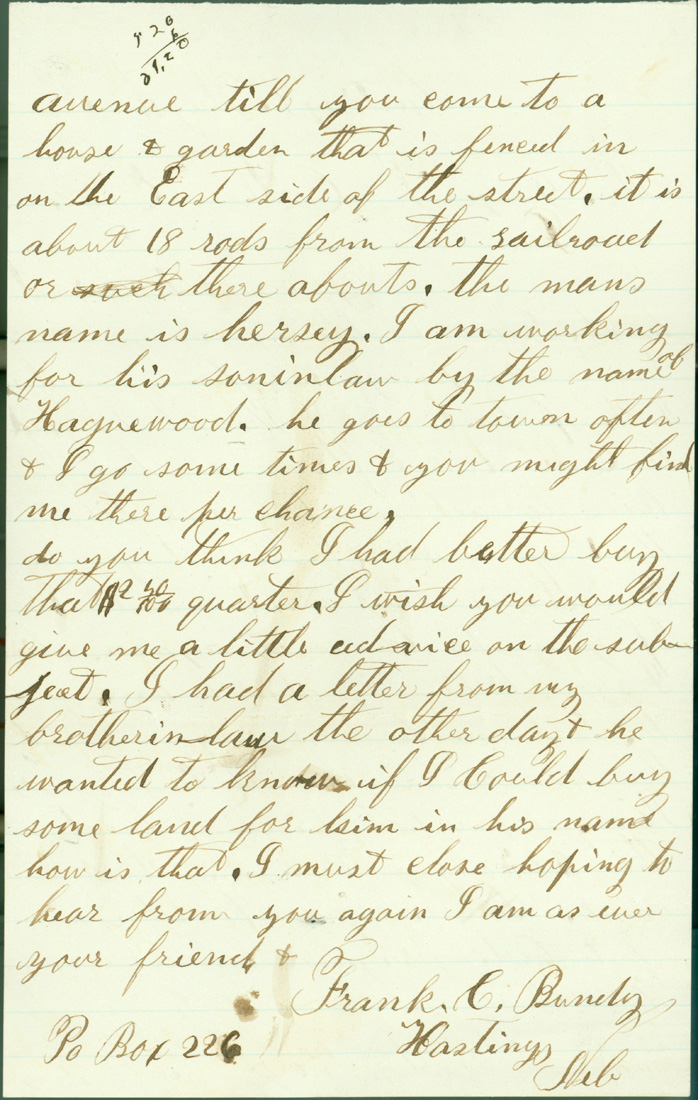 5 20
6
31,20
avenue till you come to a
house & garden that is fenced in
on the East side of the street. it is
about 18 rods from the railroad
or there abouts. the mans
name is hersey. I am working
for his soninlaw by the name of
Haguewood. he goes to town often
& I go some times & you might find
me there per chance.
do you think I had better buy
that $2 50/100 quarter. I wish you would
give me a little advice on the sub-
ject. I had a letter from my
brotherinlaw the other day & he
wanted to know if I Could buy
some land for him in his name
how is that. I must close hoping to
hear from you again I am as ever
your friend &
Frank. C. Bundy
Po Box 226 Hastings
Neb